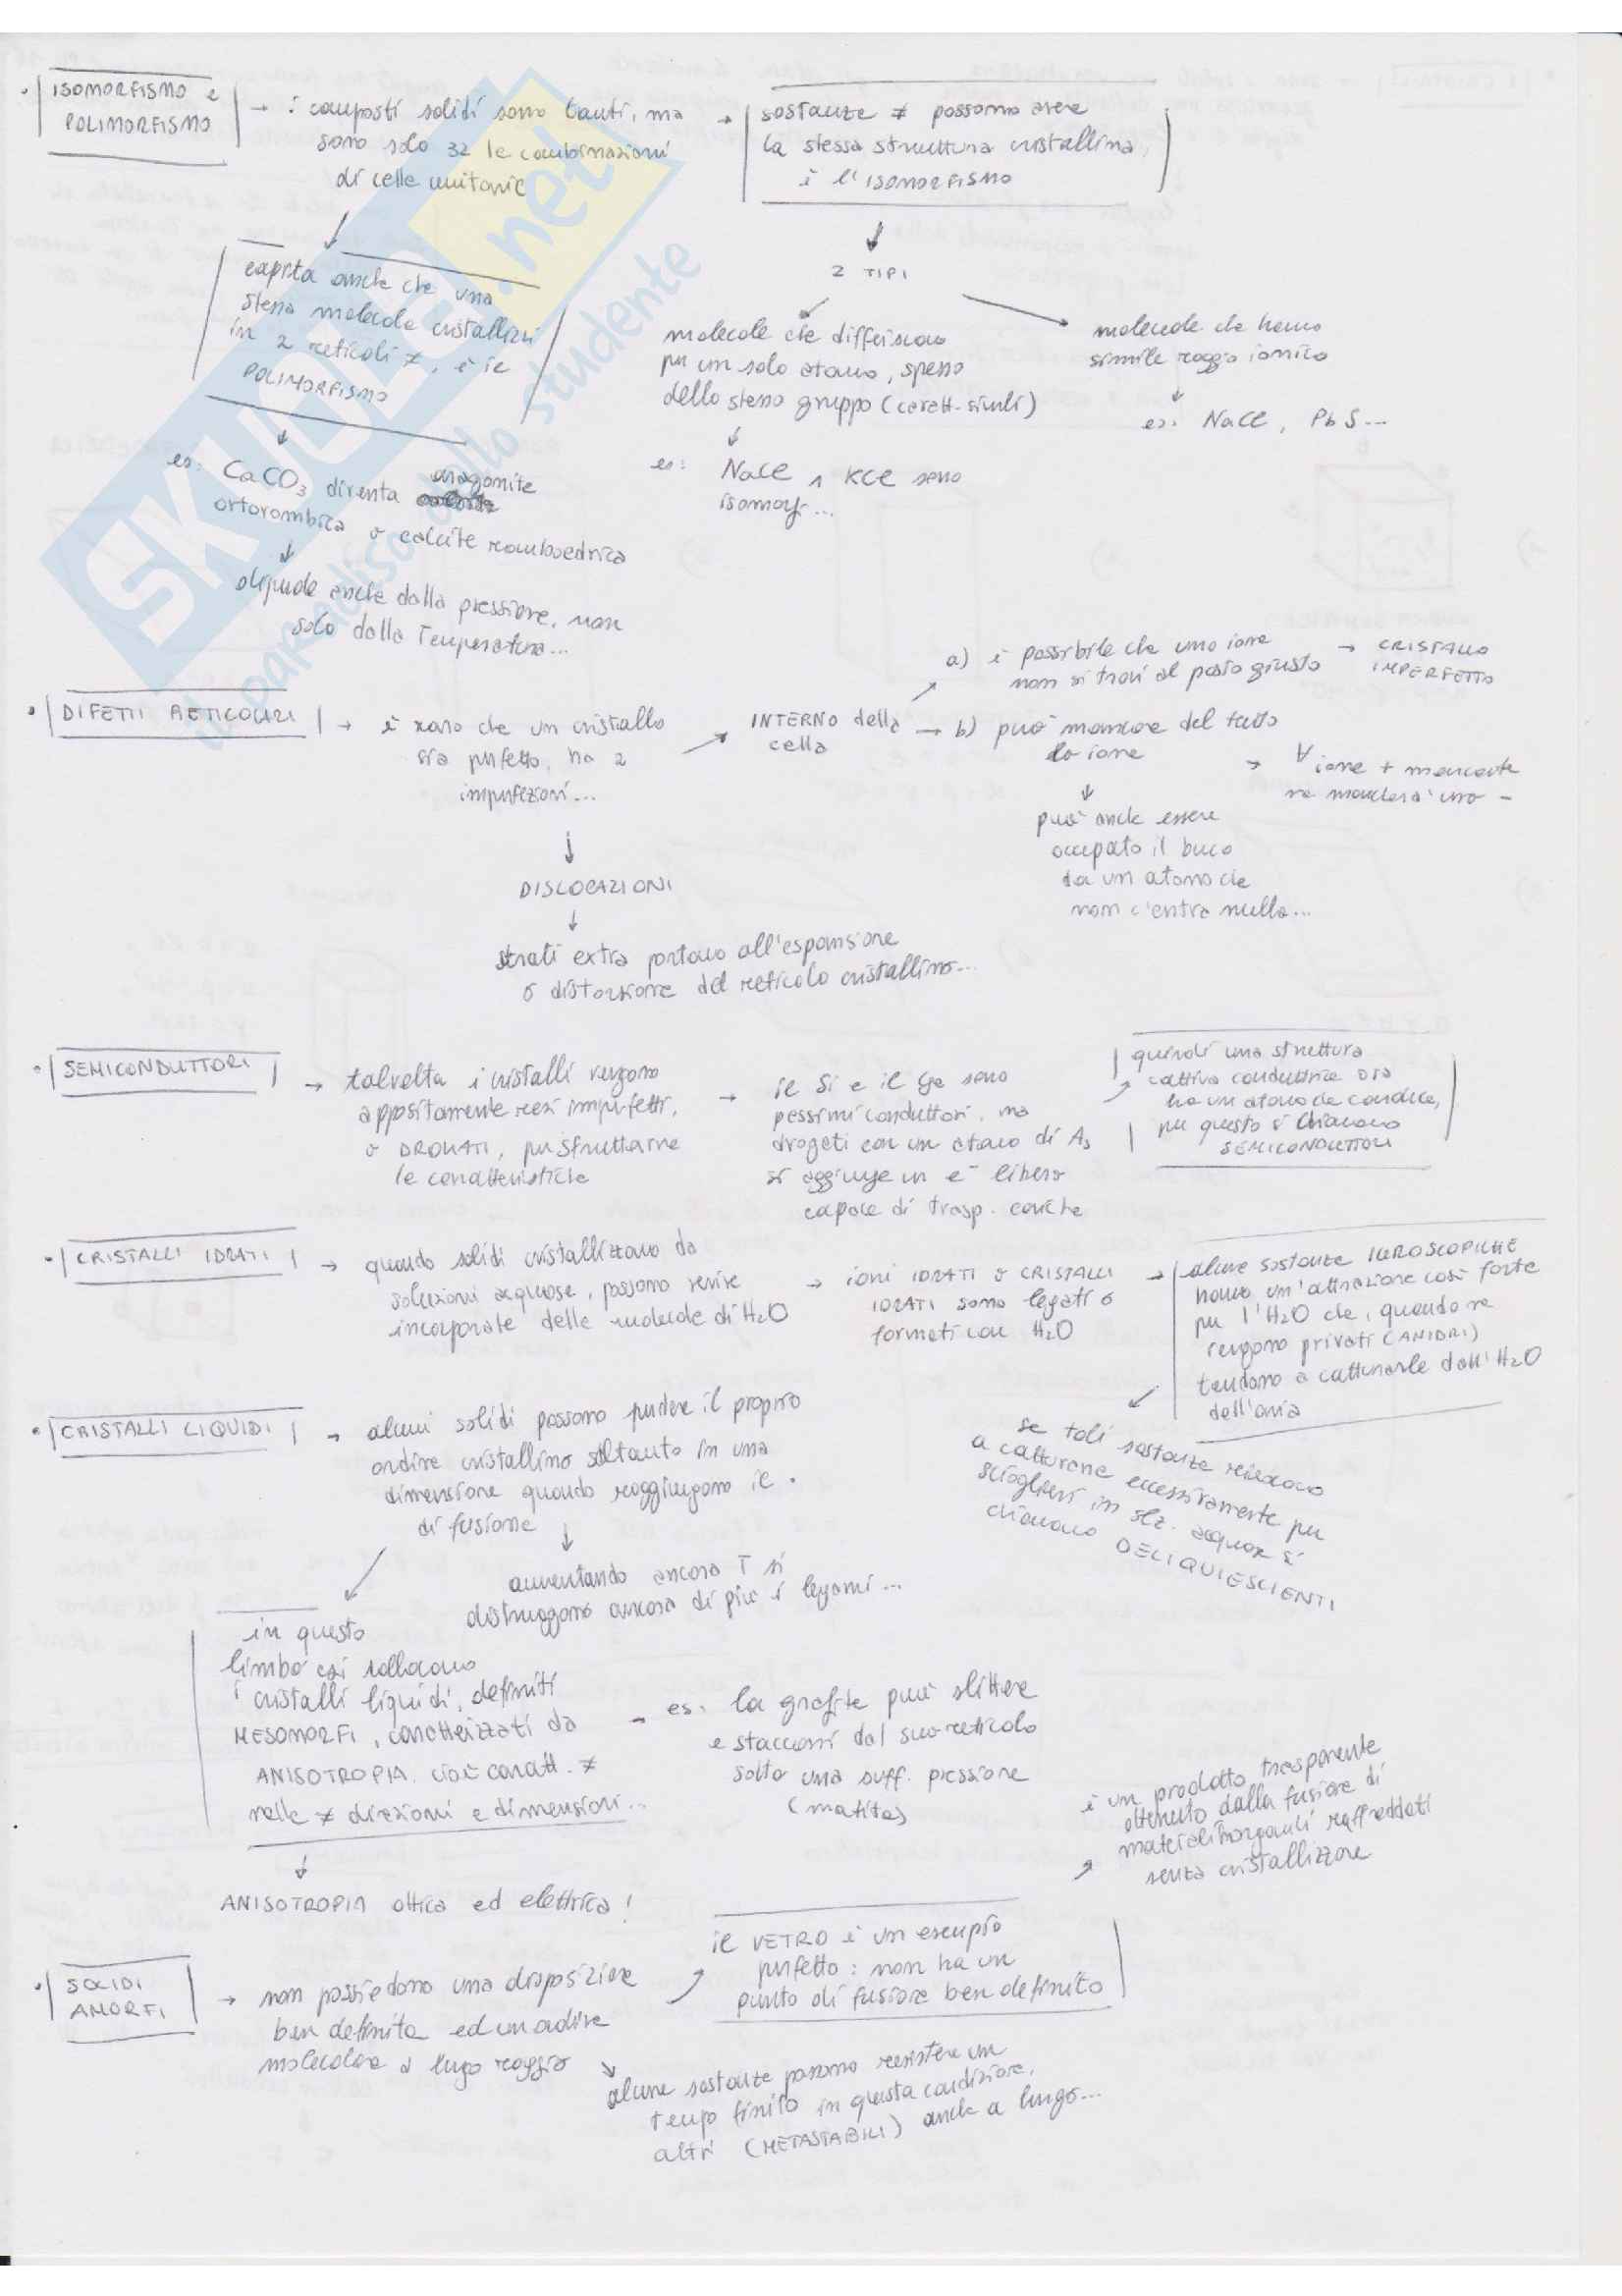 ISOMORFISMO e
POLIMORFISMO
→ i composti solidi sono tanti, ma
sono solo 32 le combinazioni
di celle unitarie
→ sostanze ≠ possono avere
la stessa struttura cristallina,
è l'ISOMORFISMO
capita anche che una
stessa molecola cristallizzi
in 2 reticoli ≠, è il
POLIMORFISMO
es: CaCO3 diventa aragonite
ortorombica o calcite romboedrica
dipende anche dalla pressione, non
solo dalla Temperatura...
2 TIPI
molecole che differiscono
per un solo atomo, spesso
dello stesso gruppo (caratt. simili)
es: NaCl, KCl sono
isomorf...
molecole che hanno
simile raggio ionico
es. NaCl, PbS...
DIFETTI RETICOLARI
→ è raro che un cristallo
sia perfetto, ha 2
imperfezioni...
INTERNO della
cella
a) è possibile che uno ione
non si trovi al posto giusto
→ CRISTALLO
IMPERFETTO
→ b) può mancare del tutto
lo ione
→ ∀ ione + mancante
ne mancherà uno -
può anche essere
occupato il buco
da un atomo che
non c'entra nulla...
DISLOCAZIONI
strati extra portano all'espansione
o distorsione del reticolo cristallino...
SEMICONDUTTORI
→ talvolta i cristalli vengono
appositamente resi imperfetti,
o DROGATI, per sfruttarne
le caratteristiche
→ il Si e il Ge sono
pessimi conduttori, ma
drogati con un atomo di As
si aggiunge un e- libero
capace di trasp. cariche
quindi una struttura
cattiva conduttrice ora
ha un atomo che conduce,
per questo si chiamano
SEMICONDUTTORI
CRISTALLI IDRATI
→ quando solidi cristallizzano da
soluzioni acquose, possono venire
incorporate delle molecole di H2O
→ ioni IDRATI o CRISTALLI
IDRATI sono legati o
formati con H2O
→ alcune sostanze IGROSCOPICHE
hanno un'attrazione così forte
per l'H2O che, quando ne
vengono privati (ANIDRI)
tendono a catturarle dall'H2O
dell'aria
se tali sostanze riescono
a catturare eccessivamente per
sciogliersi in slz. acquosa si
chiamano DELIQUIESCIENTI
CRISTALLI LIQUIDI
→ alcuni solidi possono perdere il proprio
ordine cristallino soltanto in una
dimensione quando raggiungono il .
di fusione
aumentando ancora T si
distruggono ancora di più i legami...
in questo
limbo si collocano
i cristalli liquidi, definiti
MESOMORFI, caratterizzati da
ANISOTROPIA, cioè caratt. ≠
nelle ≠ direzioni e dimensioni...
→ es. la grafite può slittare
e staccarsi dal suo reticolo
sotto una suff. pressione
(matita)
ANISOTROPIA ottica ed elettrica!
SOLIDI
AMORFI
→ non possiedono una disposizione
ben definita ed un ordine
molecolare a lungo raggio
il VETRO è un esempio
perfetto: non ha un
punto di fusione ben definito
è un prodotto trasparente
ottenuto dalla fusione di
materiali inorganici raffreddati
senza cristallizzare
alcune sostanze possono resistere un
tempo finito in questa condizione,
altri (METASTABILI) anche a lungo...
SKUOLA.net
il paradiso dello studente